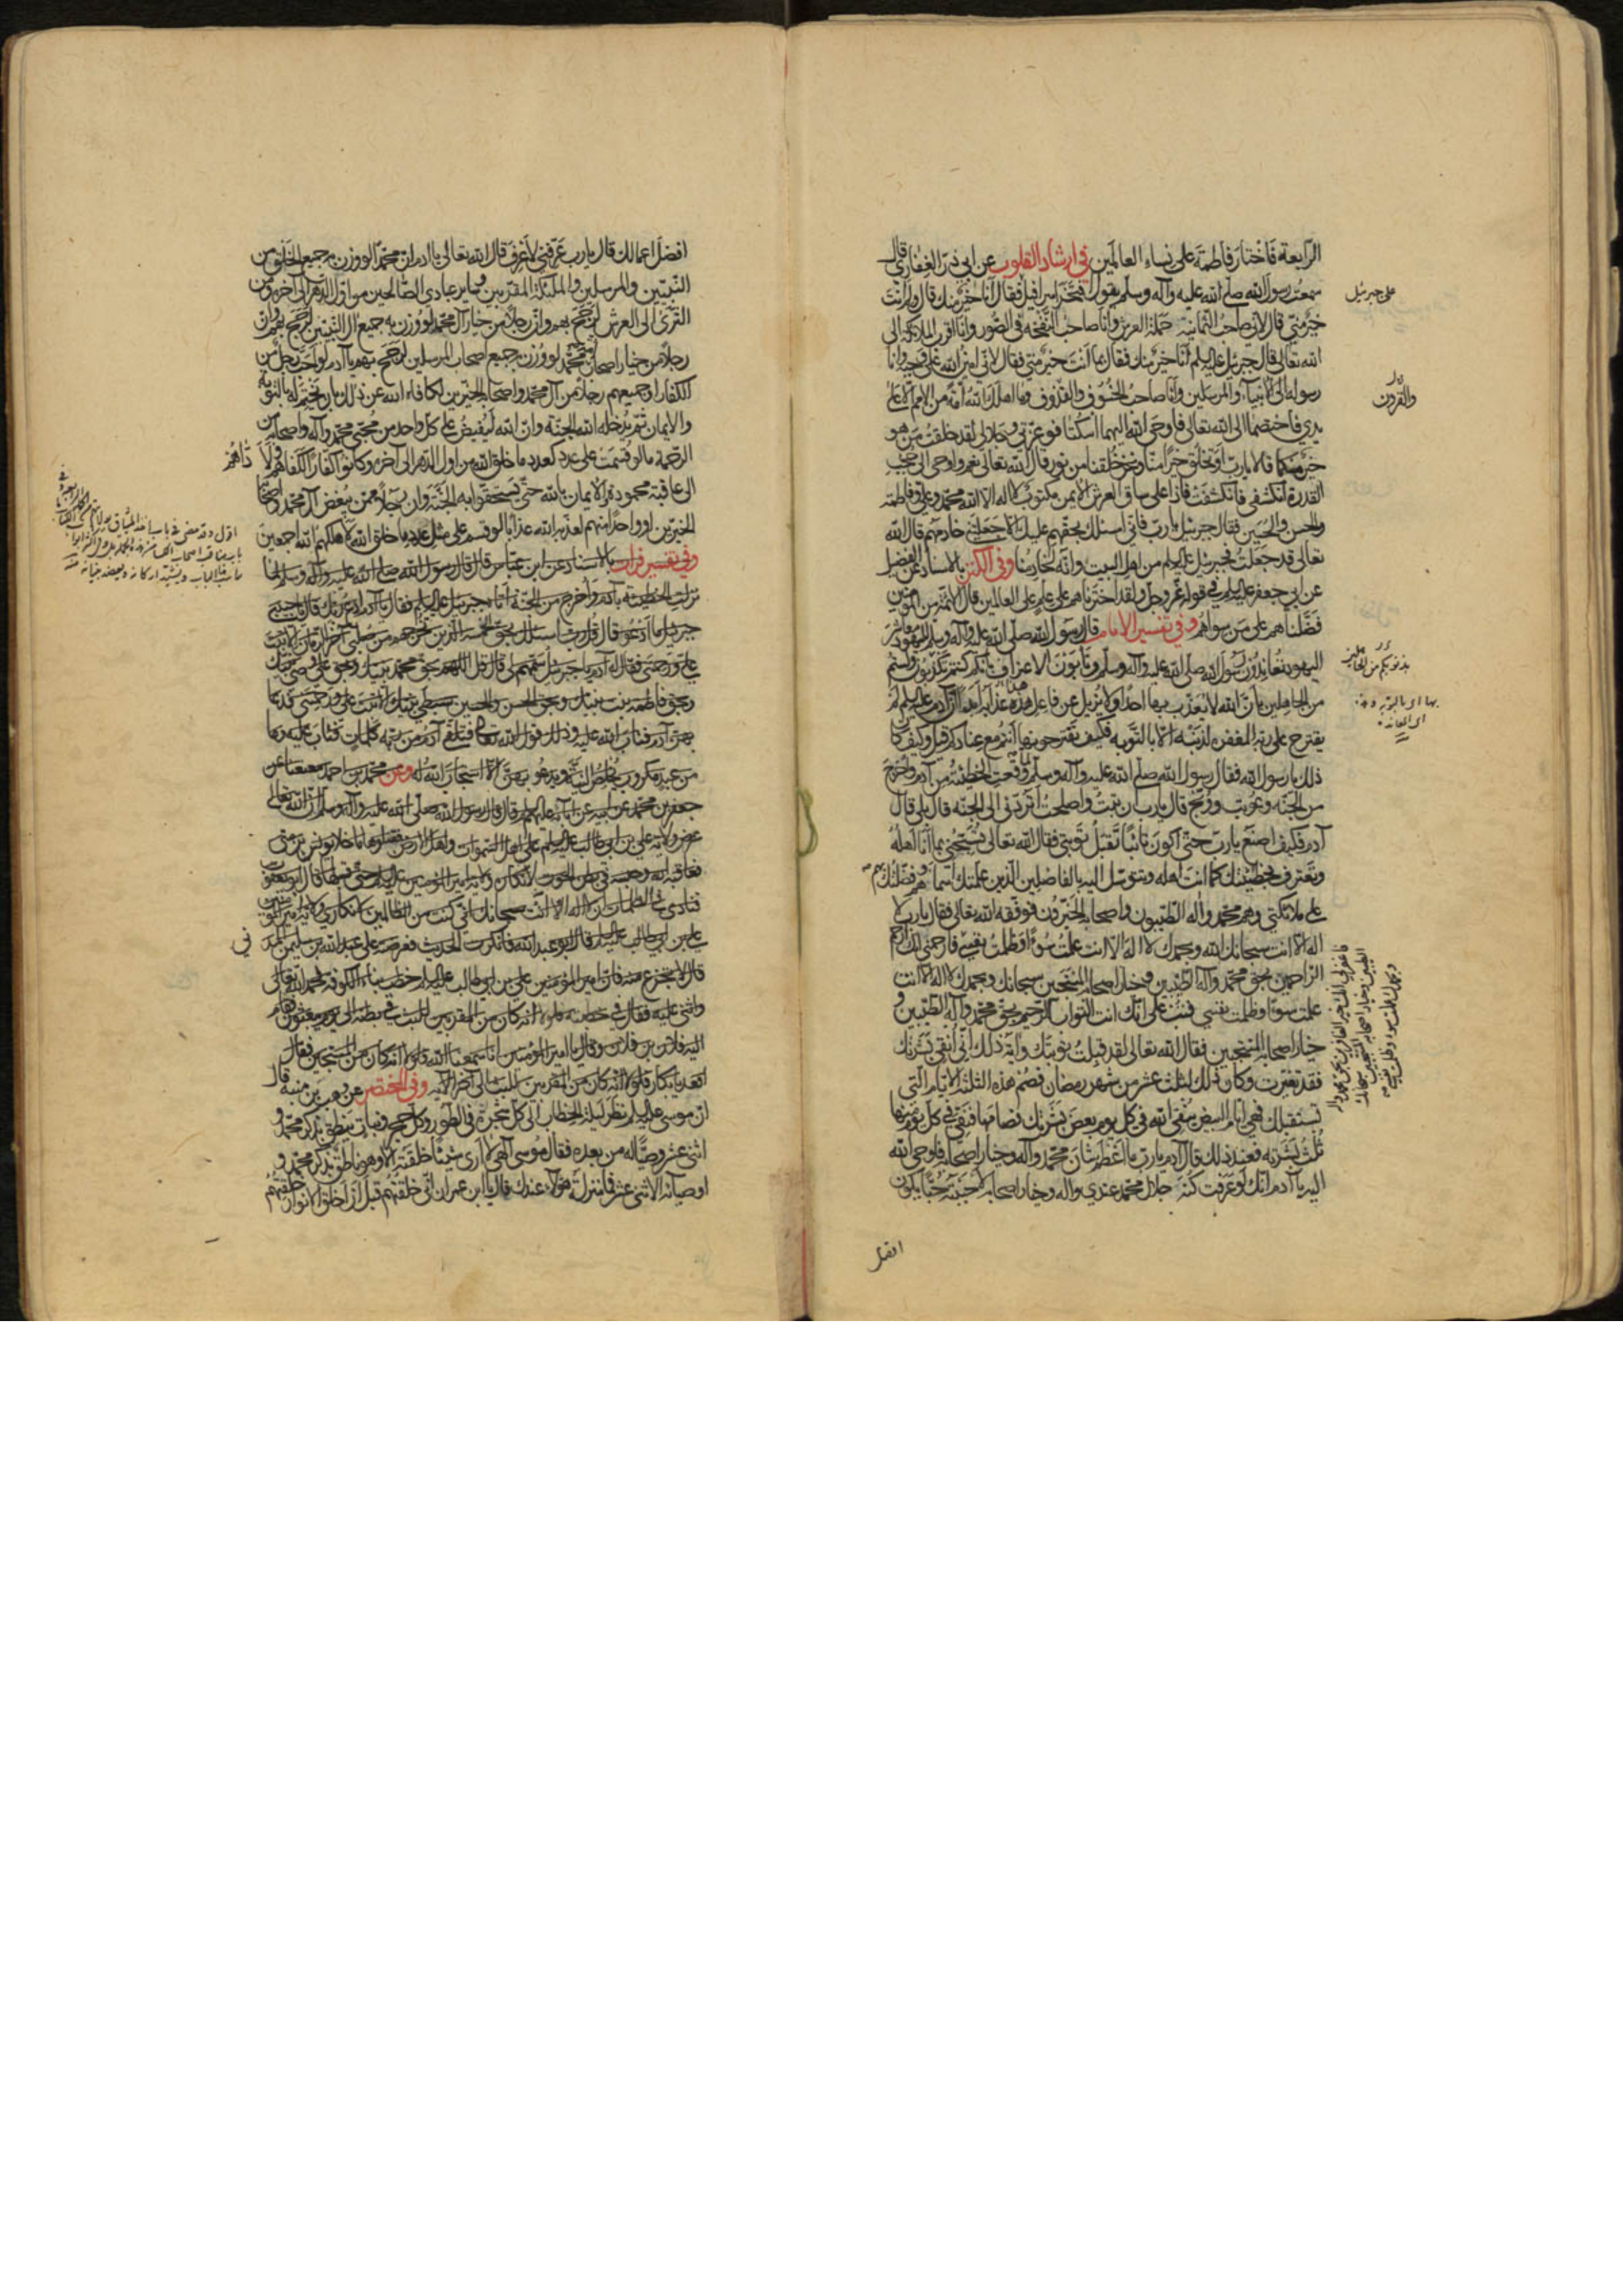 الرابعة فاختار فاطمة على نساء العالمين في ارشاد القلوب عن ابي ذر الغفاري قال
سمعت رسول الله صلى الله عليه وآله وسلم يقول افتخر اسرافيل فقال انا خير منك قال ولم انت
على جبرئيل
خير مني قال لاني صاحب الثمانية حملة العرش وانا صاحب النفخة في الصور وانا اقرب الملائكة الى
الله تعالى قال جبرئيل عليه السلم انا خير منك فقال بما انت خير مني فقال لاني امين الله على وحيه وانا
رسوله الى الانبياء والمرسلين وانا صاحب الخسوف والقذوف وما اهلك الله امة من الامم الا على
والقرون
يدي فاختصما الى الله تعالى فاوحى الله اليهما اسكتا فوعزتي وجلالي لقد خلقت من هو
خير منكما قالا يا رب او تخلق خيرا منا ونحن خلقنا من نور قال الله تعالى نعم واوحى الى حجب
القدرة انكشفي فانكشفت فاذا على ساق العرش الايمن مكتوب لا اله الا الله محمد وعلي وفاطمة
والحسن والحسين فقال جبرئيل يا رب فاني اسئلك بحقهم عليك الا جعلتني خادمهم قال الله
تعالى قد جعلت فجبرئيل عليه السلم من اهل البيت وانه لخادمنا وفي الكنز بالاسناد عن الفضيل
عن ابي جعفر عليه السلم في قوله عز وجل ولقد اخترناهم على علم على العالمين قال الائمة من المؤمنين
فضلناهم على من سواهم وفي تفسير الامام قال رسول الله صلى الله عليه وآله وسلم لليهود معاشر
اليهود تعاندون رسول الله صلى الله عليه وآله وسلم وتابون الاعتراف بانكم كنتم تكذبون ولستم
من الجاهلين بان الله لا يعذب بها احدا ولا يزيل عن فاعل هذه عذابه ابدا ان آدم عليه السلم لم
يقترح على ربه المغفرة لذنبه الا بالتوبة فكيف تقترحونها انتم مع عنادكم قيل وكيف كان
ذلك يا رسول الله فقال رسول الله صلى الله عليه وآله وسلم لما وقعت الخطيئة من آدم واخرج
من الجنة وعوتب ووبخ قال يا رب ان تبت واصلحت اتردني الى الجنة قال بلى قال
آدم فكيف اصنع يا رب حتى اكون تائبا تقبل توبتي فقال الله تعالى تسبحني بما انا اهله
وتعترف بخطيئتك كما انت اهله وتتوسل الي بالفاضلين الذين علمتك اسماءهم وفضلتك بهم
على ملائكتي وهم محمد وآله الطيبون واصحابه الخيرون فوفقه الله تعالى فقال يا رب لا
اله الا انت سبحانك اللهم وبحمدك لا اله الا انت عملت سوءا وظلمت نفسي فارحمني انك ارحم
الراحمين بحق محمد وآله الطيبين وخيار اصحابه المنتجبين سبحانك وبحمدك لا اله الا انت
عملت سوءا وظلمت نفسي فتب علي انك انت التواب الرحيم بحق محمد وآله الطيبين و
خيار اصحابه المنتجبين فقال الله تعالى لقد قبلت توبتك وآية ذلك اني انقي بشرتك
فقد تغيرت وكان ذلك لثلث عشر من شهر رمضان فصم هذه الثلثة الايام التي
تستقبلك فهي ايام البيض ينقي الله في كل يوم بعض بشرتك فصامها فنقي في كل يوم منها
ثلث بشرته فعند ذلك قال آدم يا رب ما اعظم شأن محمد وآله وخيار اصحابه فاوحى الله
اليه يا آدم انك لو عرفت كنه جلال محمد عندي وآله وخيار اصحابه لاحببته حبا يكون
افضل
افضل اعمالك قال يا رب عرفني لاعرف قال الله تعالى يا آدم ان محمدا لو وزن به جميع الخلق من
النبيين والمرسلين والملئكة المقربين وساير عبادي الصالحين من اول الدهر الى آخره ومن
الثرى الى العرش لرجح بهم وان رجلا من خيار آل محمد لو وزن به جميع آل النبيين لرجح بهم وان
رجلا من خيار اصحاب محمد لو وزن به جميع اصحاب المرسلين لرجح بهم يا آدم لو احب رجل من
الكفار او جميعهم رجلا من آل محمد واصحابه الخيرين لكافاه الله عن ذلك بان يختم له بالتوبة
والايمان ثم يدخله الله الجنة وان الله ليفيض على كل واحد من محبي محمد وآله واصحابه من
الرحمة ما لو قسمت على عدد كعدد ما خلق الله من اول الدهر الى آخره وكانوا كفارا لكفاهم ولا
الى عاقبة محمودة الايمان بالله حتى يستحقوا به الجنة وان رجلا ممن يبغض آل محمد واصحابه
الخيرين او واحدا منهم لعذبه الله عذابا لو قسم على مثل عدد ما خلق الله لاهلكهم الله اجمعين
وفي تفسير فرات بالاسناد عن ابن عباس قال قال رسول الله صلى الله عليه وآله وسلم لما
نزلت الخطيئة بآدم واخرج من الجنة اتاه جبرئيل عليه السلم فقال يا آدم ادع ربك قال يا حبيبي
جبرئيل ما ادعو قال قل رب اسئلك بحق الخمسة الذين تخرجهم من صلبي آخر الزمان الا تبت
علي ورحمتني فقال له آدم يا جبرئيل سمهم لي قال قل اللهم بحق محمد نبيك وبحق علي وصي نبيك
وبحق فاطمة بنت نبيك وبحق الحسن والحسين سبطي نبيك الا تبت علي ورحمتني فدعا
بهن آدم فتاب الله عليه وذلك قول الله تعالى فتلقى آدم من ربه كلمات فتاب عليه وما
من عبد مكروب يخلص النية ويدعو بهن الا استجاب الله له وعن محمد بن احمد معنعنا عن
جعفر بن محمد عن ابيه عن آبائه عليهم السلم قال قال رسول الله صلى الله عليه وآله وسلم ان الله تعالى
عرض ولاية علي بن ابي طالب عليه السلم على اهل السموات واهل الارض فقبلوها ما خلا يونس بن متى
فعاقبه الله وحبسه في بطن الحوت لانكاره ولاية امير المؤمنين علي حتى قبلها قال ابو يعقوب
فنادى في الظلمات ان لا اله الا انت سبحانك اني كنت من الظالمين لانكاري ولاية امير المؤمنين
علي بن ابي طالب عليه السلم قال ابو عبد الله فانكرت الحديث فعرضته على عبد الله بن سليمن المدني
قال لا تجزع منه فان امير المؤمنين علي بن ابي طالب عليه السلم خطب بنا بالكوفة فحمد الله تعالى
واثنى عليه فقال في خطبته فلولا انه كان من المقربين للبث في بطنه الى يوم يبعثون فقام
اليه فلان بن فلان وقال يا امير المؤمنين انا سمعنا الله فلولا انه كان من المسبحين فقال
اقعد يا بكار فلولا انه كان من المقربين للبث الى آخر الآية وفي المختصر عن وهب بن منبه قال
ان موسى عليه السلم نظر ليلة الخطاب الى كل شجرة في الطور وكل حجر ونبات ينطق بذكر محمد و
اثني عشر وصيا له من بعده فقال موسى الهي لا ارى شيئا خلقته الا وهو ناطق بذكر محمد و
اوصيائه الاثني عشر فما منزلة هؤلاء عندك قال يا ابن عمران اني خلقتهم قبل ان اخلق الانوار